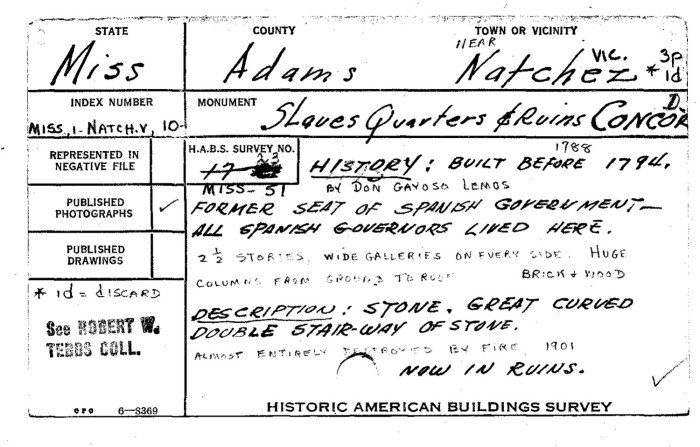 STATE
COUNTY
TOWN OR VICINITY
Miss
Adams
NEAR
Natchez VIC.
3p
* 1d
INDEX NUMBER
MISS, 1- NATCH.V, 10-
MONUMENT
Slaves Quarters & Ruins CONCORD.
REPRESENTED IN
NEGATIVE FILE
PUBLISHED
PHOTOGRAPHS ✓
PUBLISHED
DRAWINGS
* 1d = DISCARD
See ROBERT W.
TEBBS COLL.
H.A.B.S. SURVEY NO.
17
MISS- 51
1788
HISTORY: BUILT BEFORE 1794.
BY DON GAYOSO LEMOS
FORMER SEAT OF SPANISH GOVERNMENT—
ALL SPANISH GOVERNORS LIVED HERE.
2 ½ STORIES, WIDE GALLERIES ON EVERY SIDE. HUGE
COLUMNS FROM GROUND TO ROOF BRICK & WOOD
DESCRIPTION: STONE. GREAT CURVED
DOUBLE STAIR-WAY OF STONE.
ALMOST ENTIRELY DESTROYED BY FIRE 1901
NOW IN RUINS.
✓
GPO 6—8369
HISTORIC AMERICAN BUILDINGS SURVEY